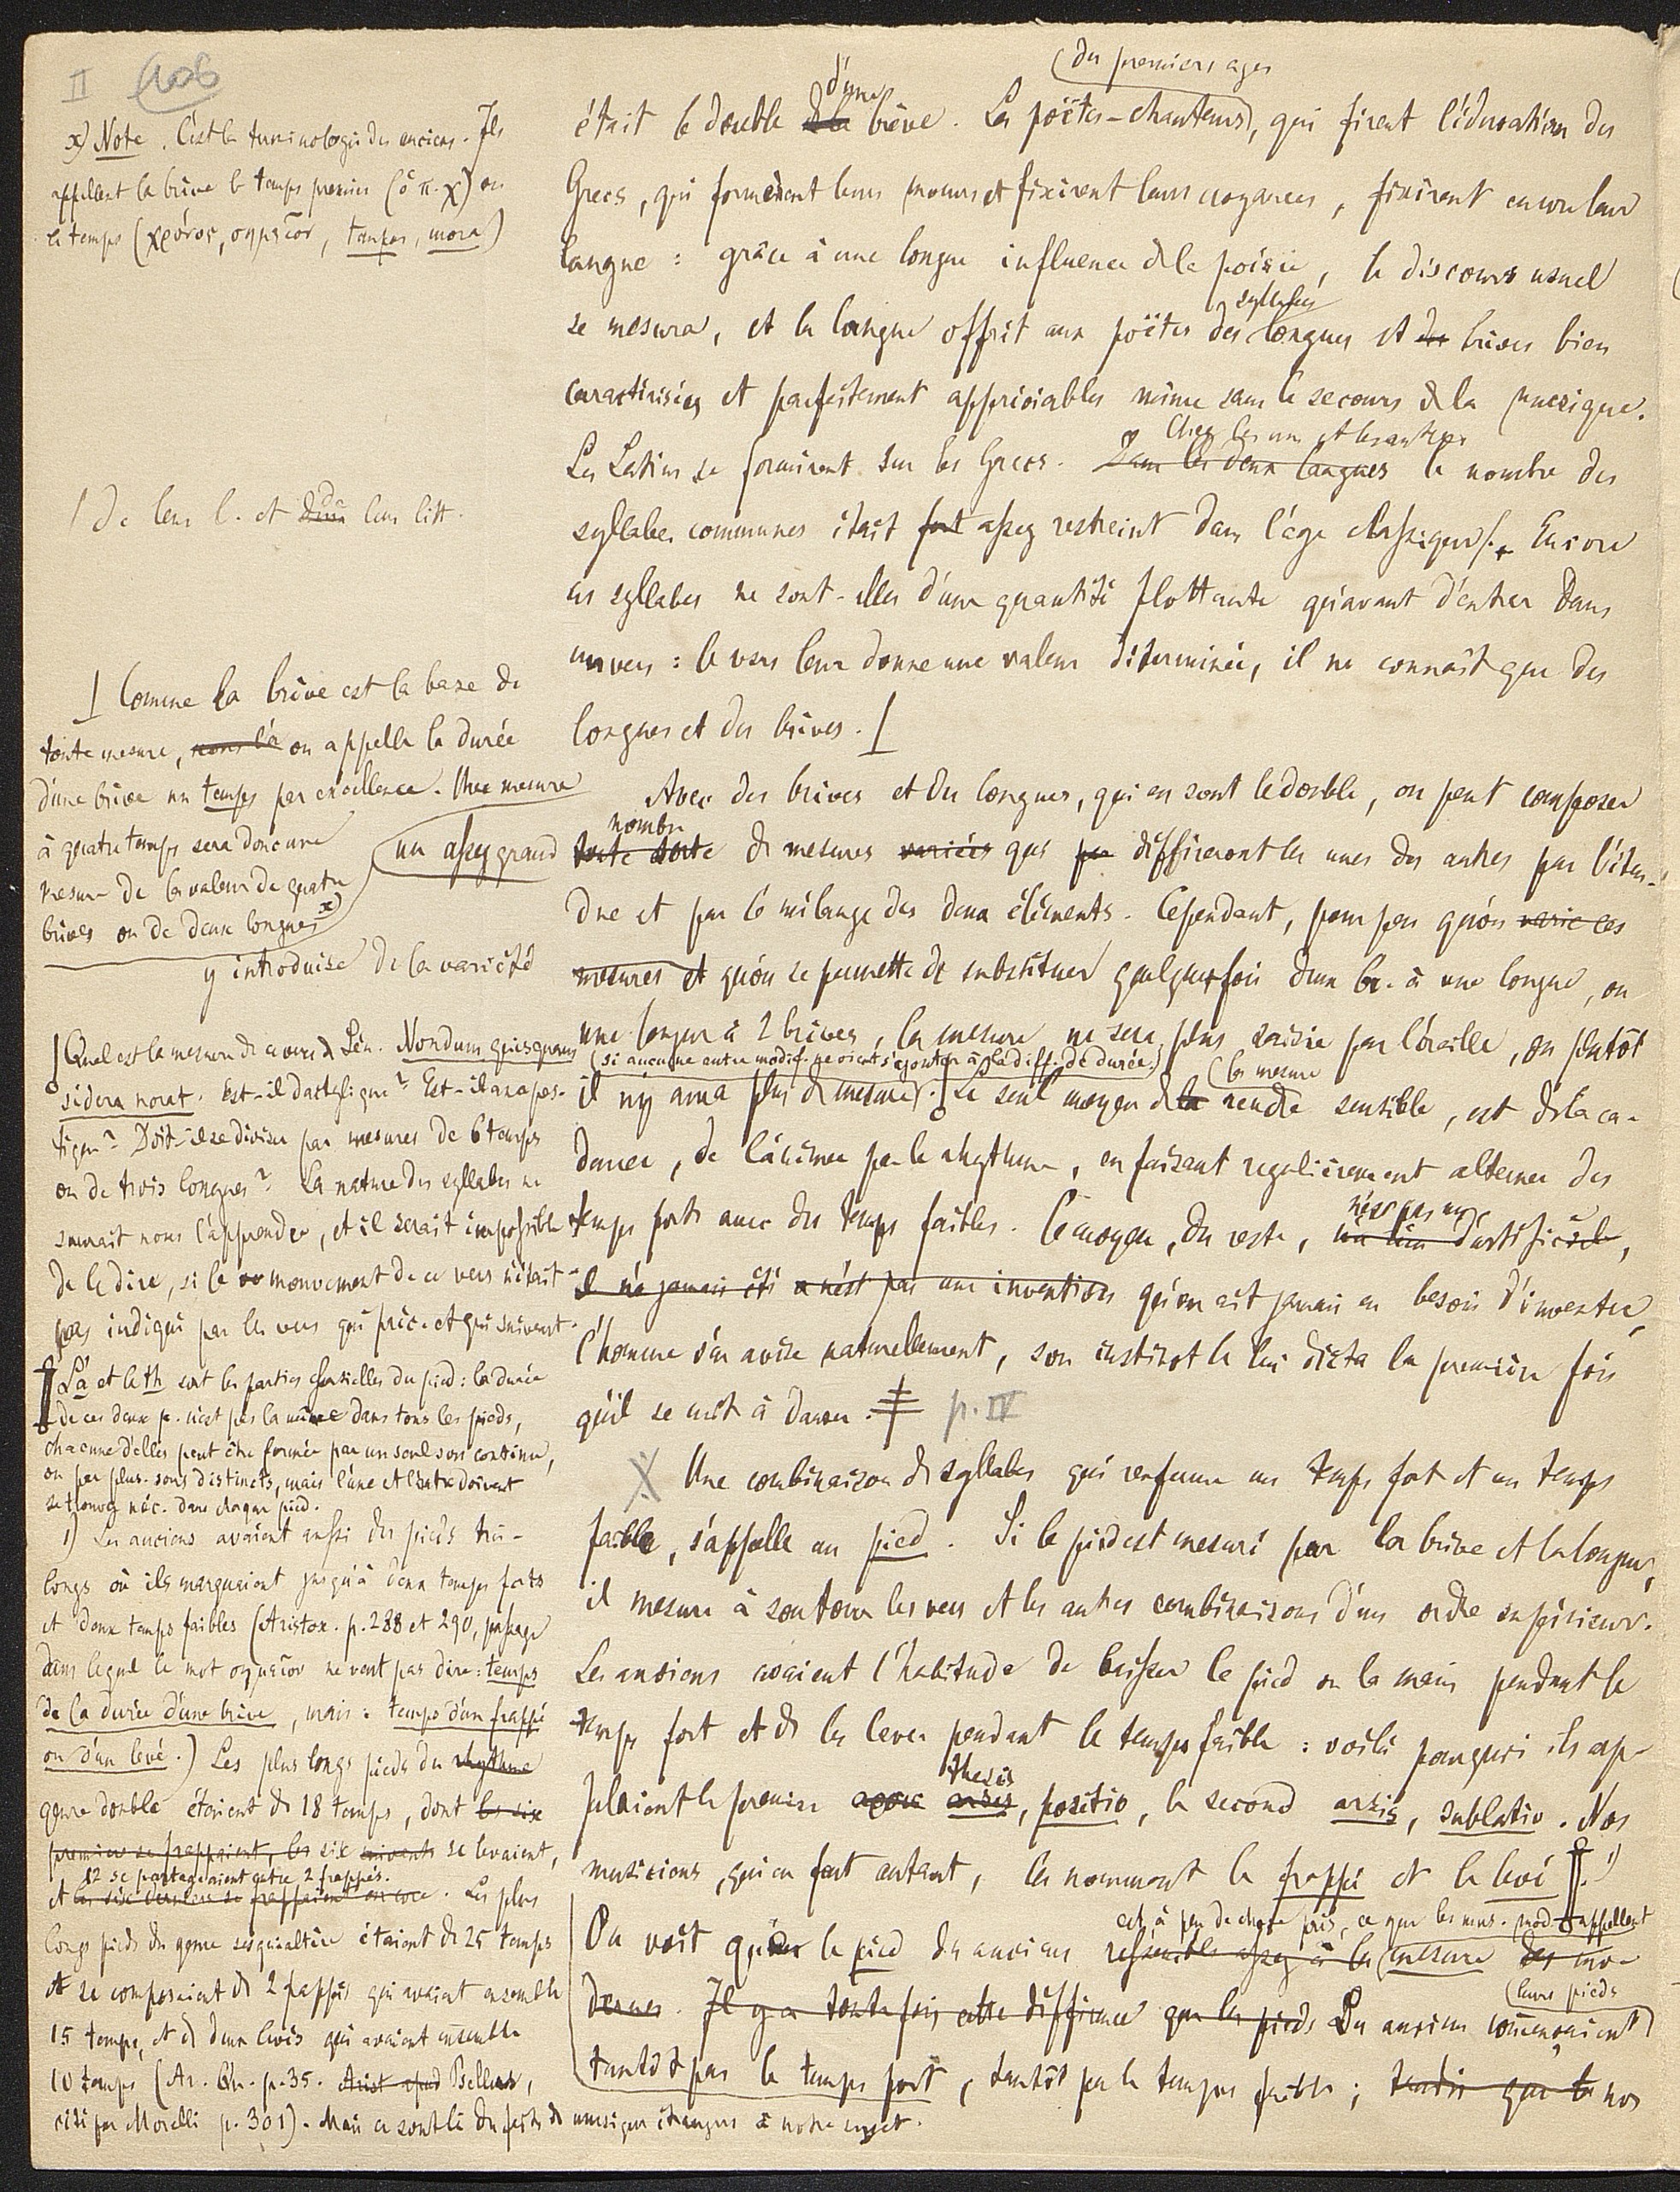 II
106
x) Note. C'est la terminologie des anciens. Ils
appellent la brève le temps premier (ὁ π. χ) ou
le temps (χρόνος, σημεῖον, tempus, mora)
/ De leur l. et de leur litt.
Comme la brève est la base de
toute mesure, nous l'a on appelle la durée
d'une brève un temps par excellence. Une mesure
à quatre temps sera donc une
mesure de la valeur de quatre
brèves ou de deux longues x)
un assez grand
y introduise de la variété
Quel est la mesure de ce vers de Sén. Nondum quisquam
sidera norat. Est-il dactylique? Est-il anapes-
tique? Doit-il se diviser par mesures de 6 temps
ou de trois longues? La nature des syllabes ne
saurait nous l'apprendre, et il serait impossible
de le dire, si le mouvement de ce vers n'était
pas indiqué par les vers qui préc. et qui suivent.
L'a et le th sont les parties essentielles du pied: la durée
de ces deux p. n'est pas la même dans tous les pieds,
chacune d'elles peut être formée par un seul son continu,
ou par plus. sons distincts, mais l'une et l'autre doivent
se trouver néc. dans chaque pied.
1) Les anciens avaient aussi des pieds très-
longs où ils marquaient jusqu'à deux temps forts
et deux temps faibles (Aristox. p. 288 et 290, passage
dans lequel le mot σημεῖον ne veut pas dire: temps
de la durée d'une brève, mais: temps d'un frappé
ou d'un levé.) Les plus longs pieds du rhythme
genre double étaient de 18 temps, dont les six
premiers se frappaient, les six suivants se levaient,
12 se partageaient entre 2 frappés.
et les six derniers se frappaient encore. Les plus
longs pieds du genre sesquialtère étaient de 25 temps
et se composaient de 2 frappés qui avaient ensemble
15 temps, et de deux levés qui avaient ensemble
10 temps (Ar. Qu. p. 35. Arist apud Psellus,
cité par Morelli p. 301). Mais ce sont là des faits de musique étrangers à notre sujet.
du premiers ages
d'une
était le double de la brève. Les poëtes-chanteurs, qui firent l'éducation des
Grecs, qui formèrent leurs mœurs et fixèrent leurs croyances, fixèrent encore leur
langue: grâce à une longue influence de la poésie, le discours usuel
syllabes
se mesura, et la langue offrit aux poëtes des longues et des brèves bien
caractérisées et parfaitement appréciables même sans le secours de la musique.
Chez les uns et les autres
Les Latins se formèrent sur les Grecs. Dans les deux langues le nombre des
syllabes communes était fort assez restreint dans l'âge classique. Encore
ces syllabes ne sont-elles d'une quantité flottante qu'avant d'entrer dans
un vers: le vers leur donne une valeur déterminée, il ne connaît que des
longues et des brèves.
Avec des brèves et des longues, qui en sont le double, on peut composer
nombre
toute sorte de mesures variées qui diffèreront les unes des autres par l'éten-
due et par le mélange des deux éléments. Cependant, pour peu qu'on varie ces
mesures et qu'on se permette de substituer quelquefois deux br. à une longue, ou
une longue à 2 brèves, la mesure ne sera plus saisie par l'oreille, ou plutôt
(si aucune autre modif. ne vient s'ajouter à la diff. de durée.)
(la mesure
il n'y aura plus de mesure. Le seul moyen de la rendre sensible, est de la ca-
dencer, de l'animer par le rhythme, en faisant regulièrement alterner des
temps forts avec des temps faibles. Ce moyen, du reste, n'a rien d'artificiel,
n'est pas un
il n'a jamais été n'est pas une invention qu'on ait jamais eu besoin d'inventer,
l'homme s'en avise naturellement, son instinct le lui dicta la première fois
qu'il se mit à danser. p. IV
Une combinaison de syllabes qui renferme un temps fort et un temps
faible, s'appelle un pied. Si le pied est mesuré par la brève et la longue,
il mesure à son tour les vers et les autres combinaisons d'un ordre supérieur.
Les anciens avaient l'habitude de baisser le pied ou la main pendant le
temps fort et de les lever pendant le temps faible: voilà pourquoi ils ap-
thesis
pelaient le premier arsis, positio, le second arsis, sublatio. Nos
musiciens, qui en font autant, les nomment le frappé et le levé 1)
est à peu de chose près, ce que les mus. mod. appellent
On voit que le pied des anciens ressemble assez à la mesure des mo-
(leurs pieds
dernes. Il y a toutefois cette différence que les pieds Les anciens commençaient
tantôt par le temps fort, tantôt par le temps faible; tandis que le nos